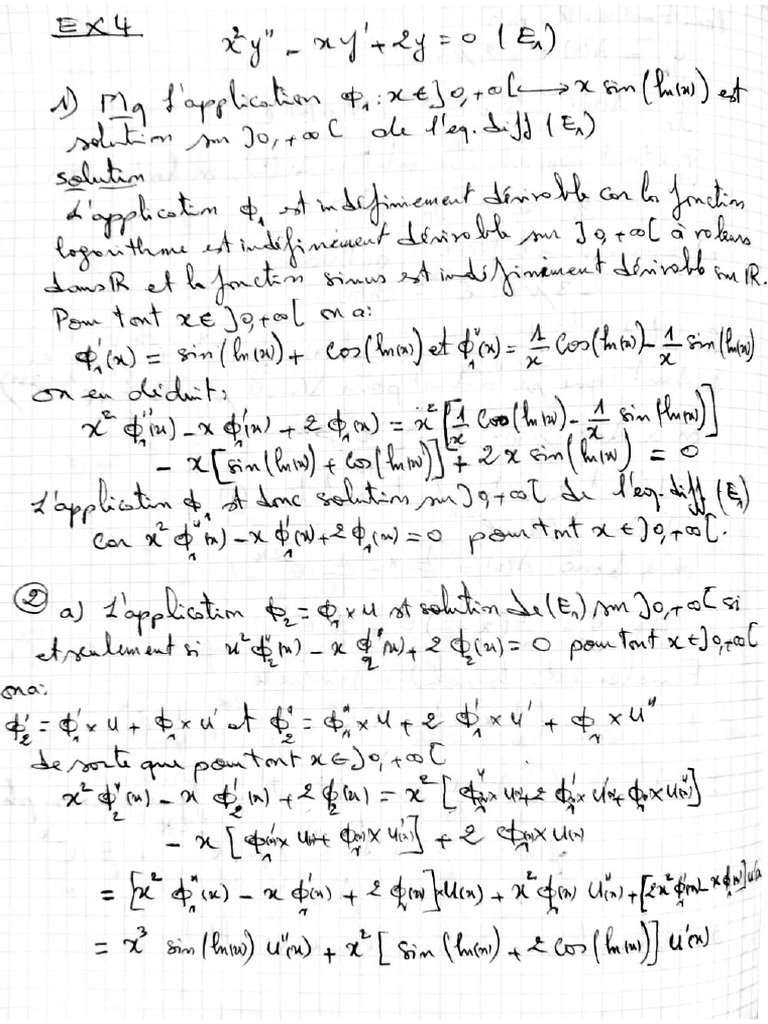 EX4
x²y" - xy' + 2y = 0 (E₁)
1) Mq l'application ϕ₁: x ∈ ]0,+∞[ ⟼ x sin(ln(x)) est
solution sur ]0,+∞[ de l'eq. diff (E₁)
solution
L'application ϕ₁ est indéfiniement dérivable car la fonction
logarithme est indéfiniement dérivable sur ]0,+∞[ à valeurs
dans ℝ et la fonction sinus est indéfiniment dérivable sur ℝ.
Pour tout x ∈ ]0,+∞[ on a:
ϕ₁'(x) = sin(ln(x)) + cos(ln(x)) et ϕ₁"(x) = 1/x cos(ln(x)) - 1/x sin(ln(x))
on en déduit:
x² ϕ₁"(x) - x ϕ₁'(x) + 2 ϕ₁(x) = x² [1/x cos(ln(x)) - 1/x sin(ln(x))]
- x [sin(ln(x)) + cos(ln(x))] + 2x sin(ln(x)) = 0
L'application ϕ₁ est donc solution sur ]0,+∞[ de l'eq. diff (E₁)
car x² ϕ₁"(x) - x ϕ₁'(x) + 2 ϕ₁(x) = 0 pour tout x ∈ ]0,+∞[.
② a) L'application ϕ₂ = ϕ₁ × u est solution de (E₁) sur ]0,+∞[ si
et seulement si x² ϕ₂"(x) - x ϕ₂'(x) + 2 ϕ₂(x) = 0 pour tout x ∈ ]0,+∞[
on a:
ϕ₂' = ϕ₁' × u + ϕ₁ × u' et ϕ₂" = ϕ₁" × u + 2 ϕ₁' × u' + ϕ₁ × u"
de sorte que pour tout x ∈ ]0,+∞[
x² ϕ₂"(x) - x ϕ₂'(x) + 2 ϕ₂(x) = x² [ϕ₁"(x) × u(x) + 2 ϕ₁'(x) × u'(x) + ϕ₁(x) × u"(x)]
- x [ϕ₁'(x) × u(x) + ϕ₁(x) × u'(x)] + 2 ϕ₁(x) × u(x)
= [x² ϕ₁"(x) - x ϕ₁'(x) + 2 ϕ₁(x)] × u(x) + x² ϕ₁(x) u"(x) + [2x² ϕ₁'(x) - x ϕ₁(x)] u'(x)
= x³ sin(ln(x)) u"(x) + x² [sin(ln(x)) + 2 cos(ln(x))] u'(x)